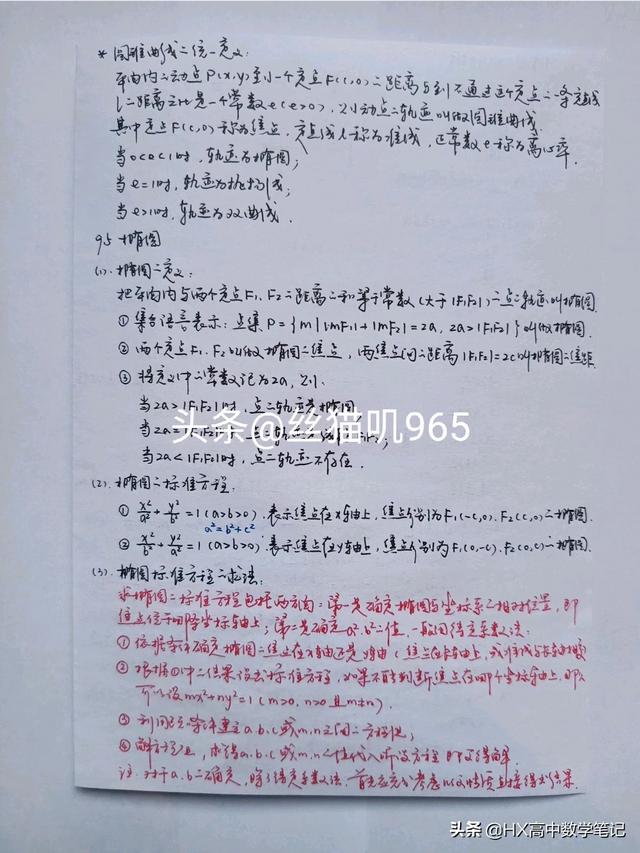 * 圆锥曲线的统一定义:
平面内的动点P(x,y)到一个定点F(c,0)的距离与到不通过这个定点的一条定直线
l的距离之比是一个常数e(e>0), 则动点的轨迹叫做圆锥曲线
其中定点F(c,0)称为焦点, 定直线l称为准线, 正常数e称为离心率.
当0<e<1时, 轨迹为椭圆;
当e=1时, 轨迹为抛物线;
当e>1时, 轨迹为双曲线.
9.5 椭圆
(1). 椭圆的定义:
把平面内与两个定点F₁, F₂的距离的和等于常数(大于|F₁F₂|)的点的轨迹叫椭圆.
① 集合语言表示: 点集P={M||MF₁|+|MF₂|=2a, 2a>|F₁F₂|}叫做椭圆.
② 两个定点F₁. F₂叫做椭圆的焦点, 两焦点间的距离|F₁F₂|=2c叫椭圆的焦距
③ 将定义中的常数记为2a, 则:
当2a>|F₁F₂|时, 点的轨迹是椭圆
当2a=|F₁F₂|时
头条@丝猫叽965
当2a<|F₁F₂|时, 点的轨迹不存在.
(2). 椭圆的标准方程.
① x²/a²+y²/b²=1(a>b>0). 表示焦点在x轴上, 焦点分别为F₁(-c,0). F₂(c,0)的椭圆.
a²=b²+c²
② x²/b²+y²/a²=1(a>b>0). 表示焦点在y轴上, 焦点分别为F₁(0,-c). F₂(0,c)的椭圆.
(3). 椭圆标准方程的求法:
求椭圆的标准方程包括两方面: 第一是确定椭圆与坐标系的相对位置, 即
焦点位于哪条坐标轴上; 第二是确定a².b²的值. 一般用待定系数法:
① 依据条件确定椭圆的焦点在x轴还是y轴
② 根据①中的结果设出标准方程, 如果不能判断焦点在哪个坐标轴上, 那么
可以设mx²+ny²=1(m>0, n>0且m≠n).
③ 利用已知条件建立a.b.c或m,n之间的方程组;
④ 解方程组, 求得a.b.c或m.n之值代入所设方程即可得解.
注: 对于a.b的确定, 除了待定系数法, 首先应考虑以性质直接得出结果.
头条 @HX高中数学笔记